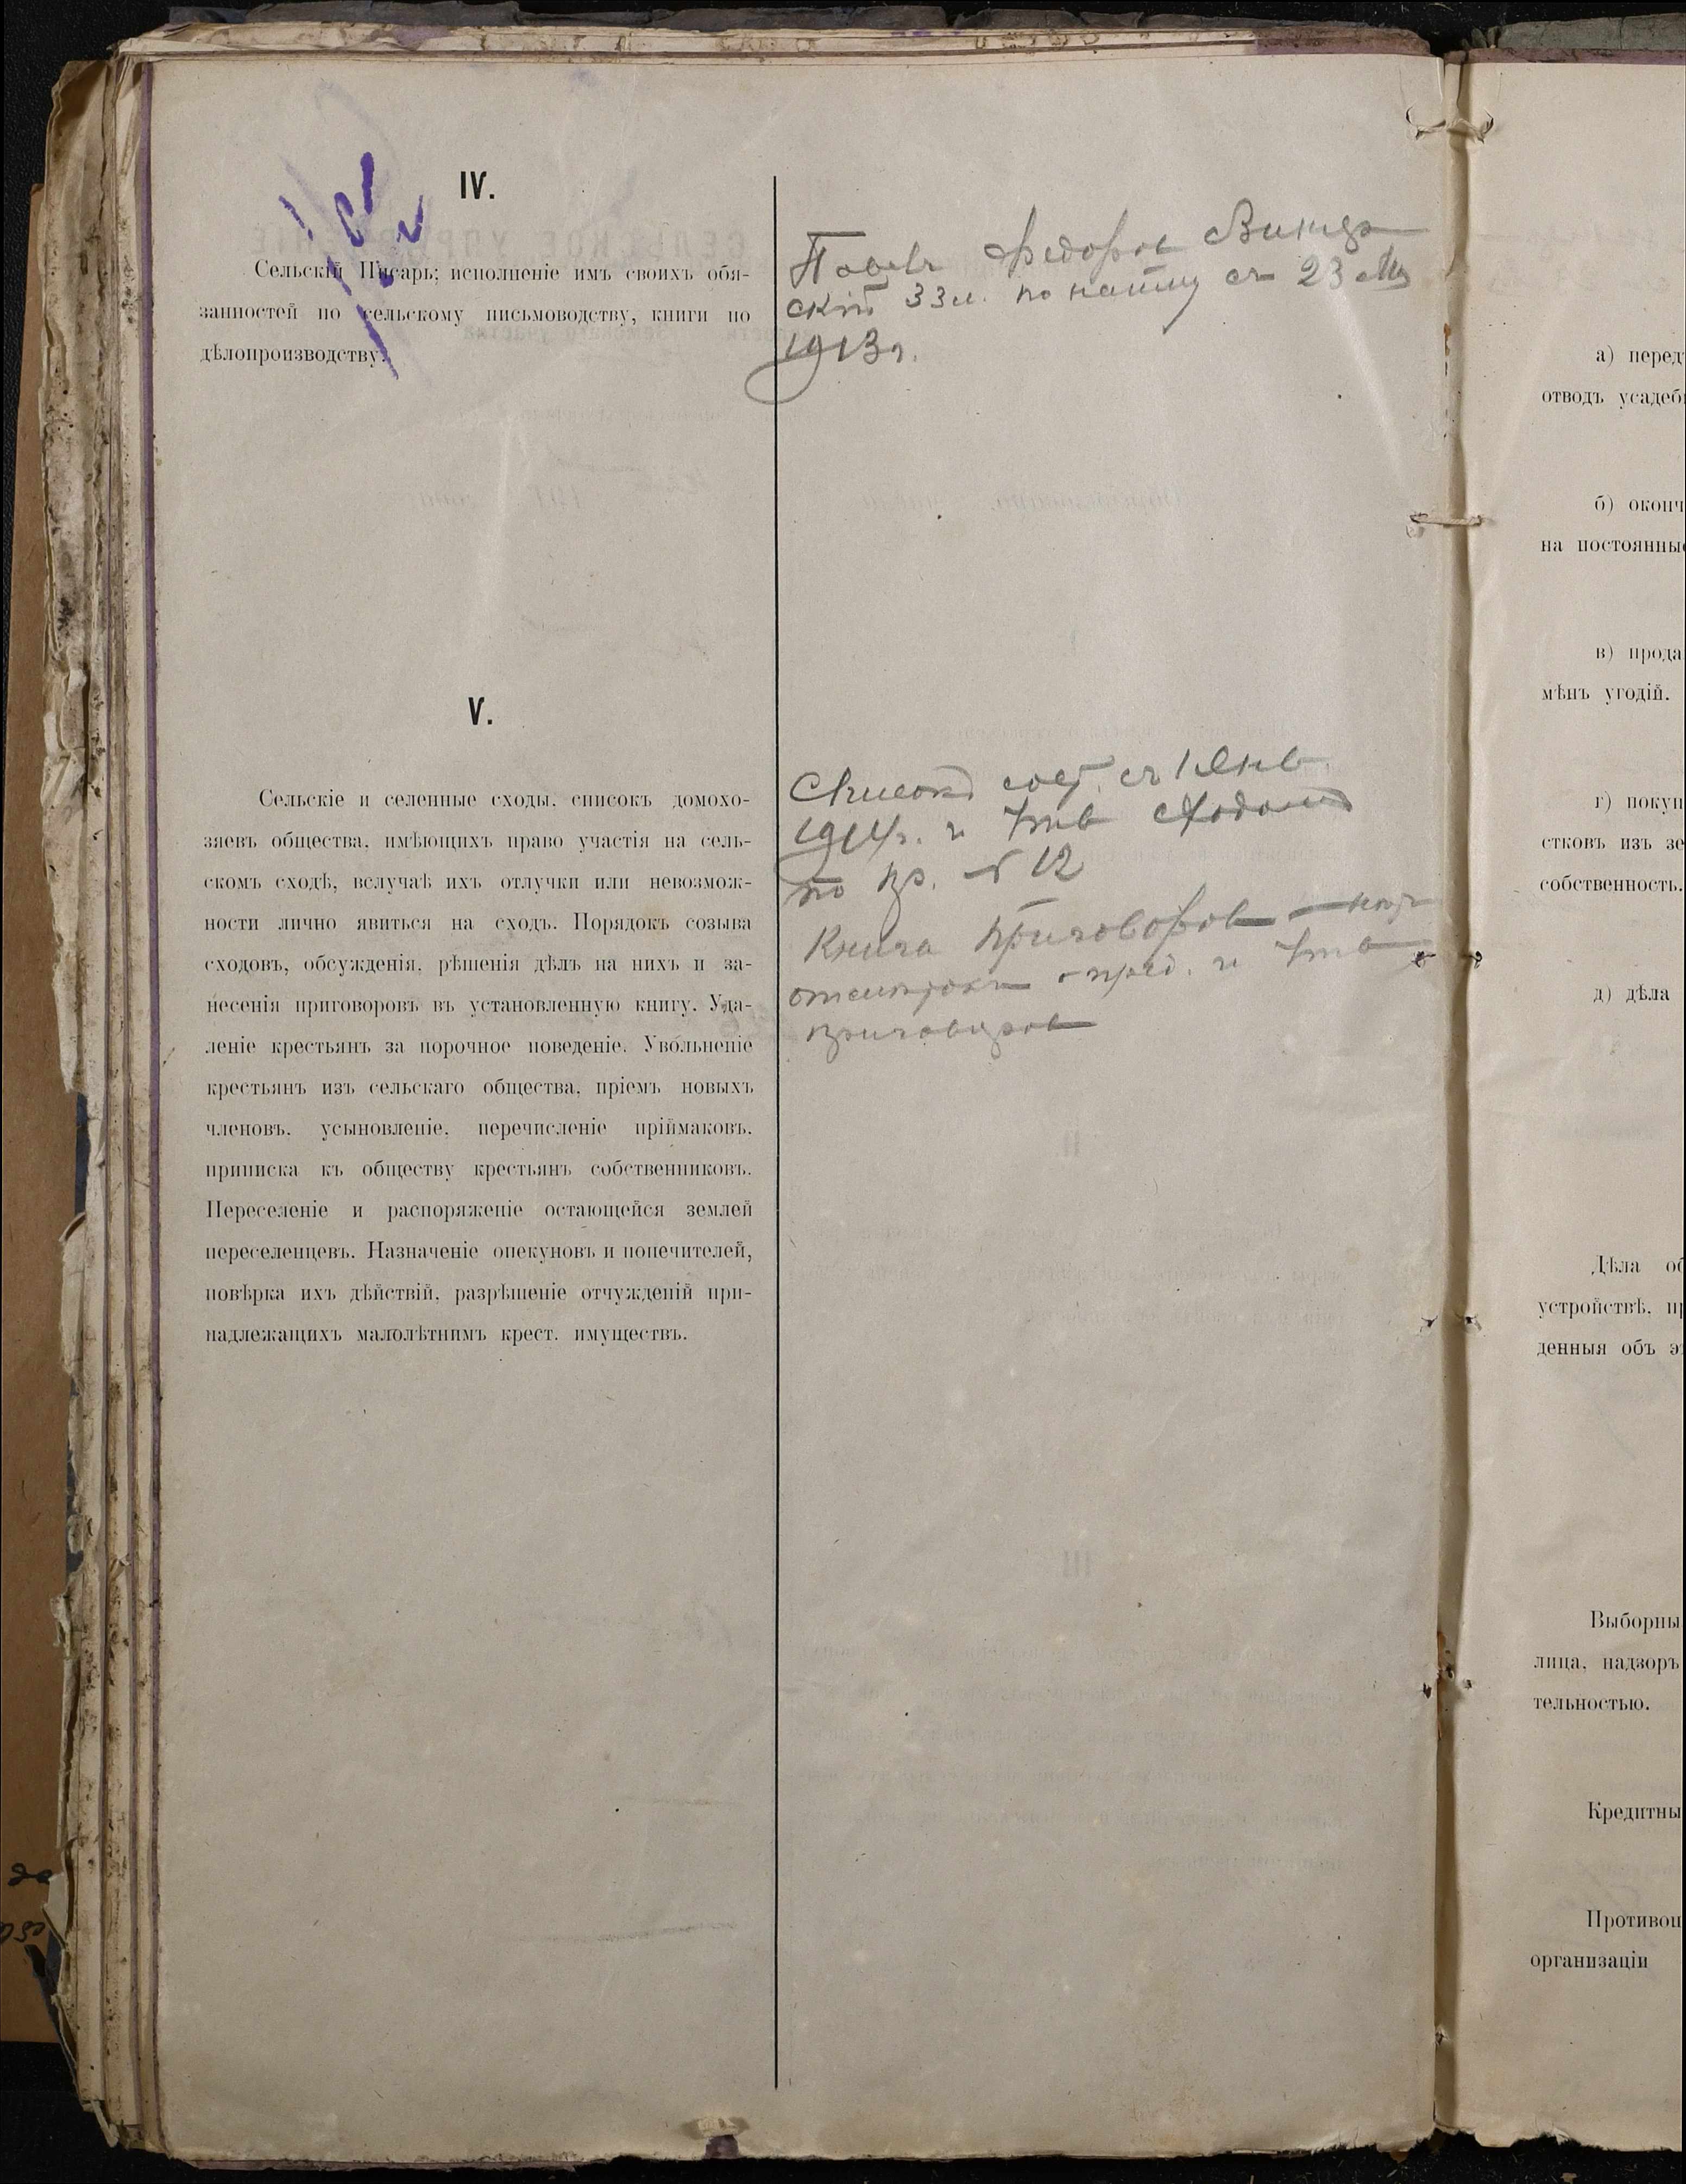 IV.
Сельскій Писарь; исполненіе имъ своихъ обя-
занностей по сельскому письмоводству, книги по
дѣлопроизводству.
Павелъ Федоров
скій 33 л. по найму съ 23
1913 г.
V.
Сельскіе и селенные сходы. списокъ домохо-
зяевъ общества. имѣющихъ право участія на сель-
скомъ сходѣ, вслучаѣ ихъ отлучки или невозмож-
ности лично явиться на сходъ. Порядокъ созыва
сходовъ, обсужденія, рѣшенія дѣлъ на нихъ и за-
несенія приговоровъ въ установленную книгу. Уда-
леніе крестьянъ за порочное поведеніе. Увольненіе
крестьянъ изъ сельскаго общества, пріемъ новыхъ
членовъ. усыновленіе. перечисленіе пріймаковъ.
приписка къ обществу крестьянъ собственниковъ.
Переселеніе и распоряженіе остающейся землей
переселенцевъ. Назначеніе опекуновъ и попечителей,
повѣрка ихъ дѣйствій, разрѣшеніе отчужденій при-
надлежащихъ малолѣтнимъ крест. имуществъ.
Списокъ сост. съ 1 Янв
1914 г. и утв сходомъ
по пр. № 12
Книга приговоров
и утв
приговоров
а) перед
отводъ усадеб
б) оконч
на постоянны
в) прода
мѣнъ угодій.
г) покуп
стковъ изъ зе
собственность.
д) дѣла
Дѣла об
устройствѣ, пр
денныя объ э
Выборны
лица, надзоръ
тельностью.
Кредитны
Противоп
организаціи